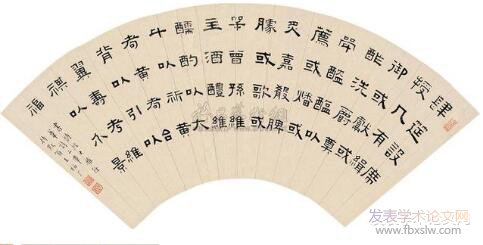 肆筵設席
授几有緝
御或獻或
酢洗爵奠
斝醓醢以
薦或燔或
炙嘉殽脾
臄或歌或
咢曾孫維
主酒醴維
醹酌以大
斗以祈黃
耇黃耇台
背以引以
翼壽考維
祺以介景
福
发表学术论文网
www.fbxslw.com